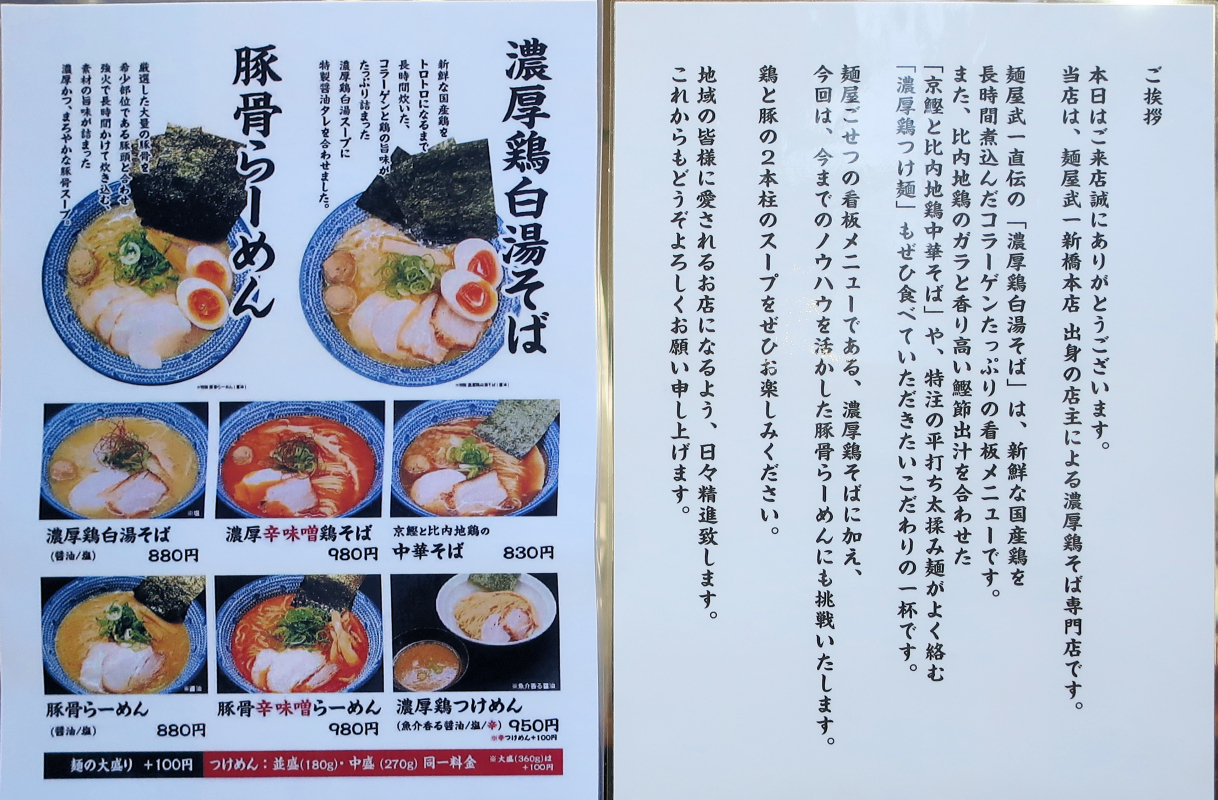 濃厚鶏白湯そば
新鮮な国産鶏を
トロトロになるまで
長時間炊いた、
コラーゲンと鶏の旨味が
たっぷり詰まった
濃厚鶏白湯スープに
特製醤油タレを合わせました。
豚骨らーめん
厳選した大量の豚骨を
希少部位である豚頭と合わせ
強火で長時間かけて炊き込む、
素材の旨味が詰まった
濃厚かつ、まろやかな豚骨スープ。
※塩
濃厚鶏白湯そば
(醤油/塩) 880円
濃厚辛味噌鶏そば
980円
京鰹と比内地鶏の
中華そば 830円
※醤油
豚骨らーめん
(醤油/塩) 880円
豚骨辛味噌らーめん
980円
※魚介香る醤油
濃厚鶏つけめん
(魚介香る醤油/塩/辛) 950円
※辛つけめん+100円
麺の大盛り +100円
つけめん：並盛(180g)・中盛(270g) 同一料金
※大盛(360g)は
+100円
ご挨拶
本日はご来店誠にありがとうございます。
当店は、麺屋武一新橋本店 出身の店主による濃厚鶏そば専門店です。
麺屋武一直伝の「濃厚鶏白湯そば」は、新鮮な国産鶏を
長時間煮込んだコラーゲンたっぷりの看板メニューです。
また、比内地鶏のガラと香り高い鰹節出汁を合わせた
「京鰹と比内地鶏中華そば」や、特注の平打ち太揉み麺がよく絡む
「濃厚鶏つけ麺」もぜひ食べていただきたいこだわりの一杯です。
麺屋ごせつの看板メニューである、濃厚鶏そばに加え、
今回は、今までのノウハウを活かした豚骨らーめんにも挑戦いたします。
鶏と豚の２本柱のスープをぜひお楽しみください。
地域の皆様に愛されるお店になるよう、日々精進致します。
これからもどうぞよろしくお願い申し上げます。